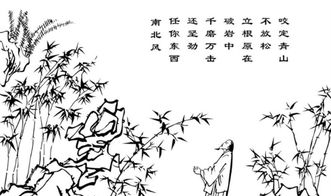 咬定青山
不放松
立根原在
破岩中
千磨万击
还坚劲
任你东西
南北风